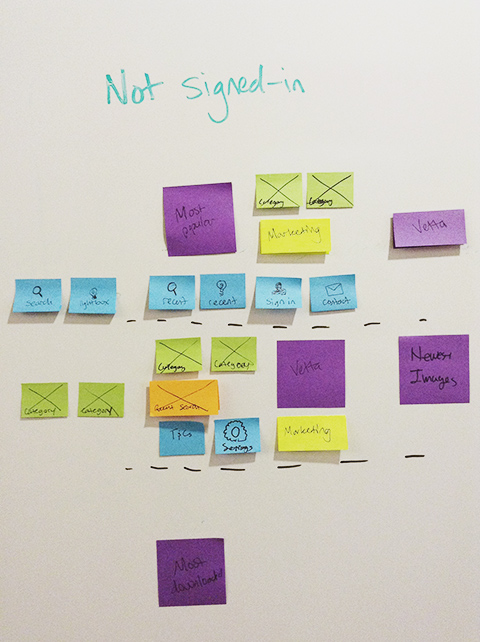 Not signed-in
Most
popular
Category
Category
Marketing
Vetta
Search
lightbox
recent
recent
Sign in
contact
Category
Category
Vetta
Newest
Images
Category
Category
Recent search
T&Cs
Settings
Marketing
Most
downloaded